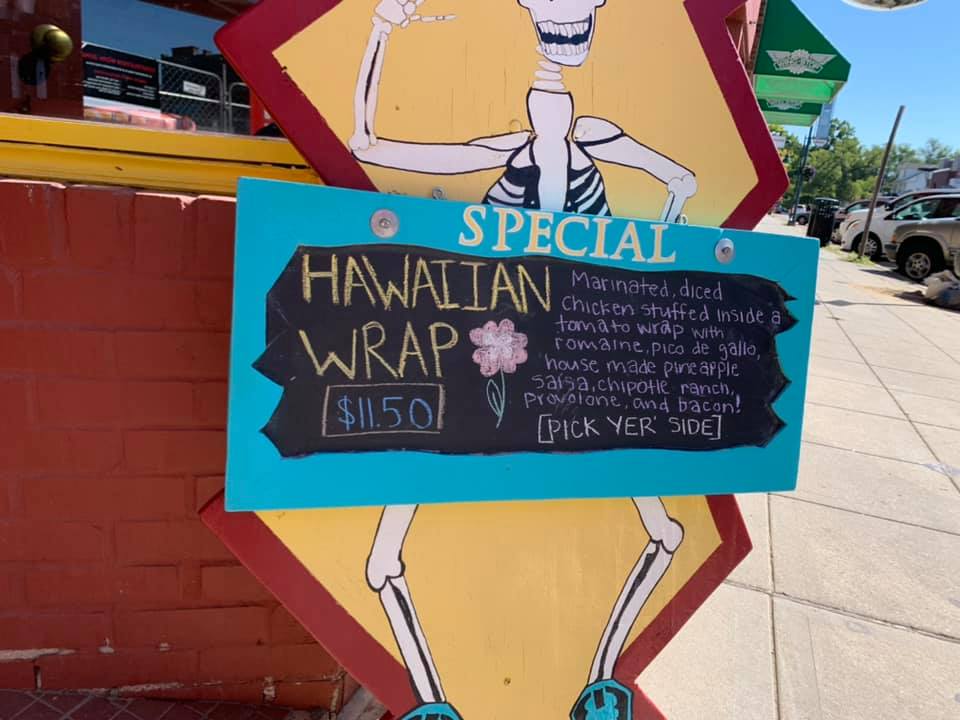 SPECIAL
HAWAIIAN
WRAP
$11.50
Marinated, diced
chicken stuffed inside a
tomato wrap with
romaine, pico de gallo,
house made pineapple
salsa, chipotle ranch,
provolone, and bacon!
[PICK YER' SIDE]